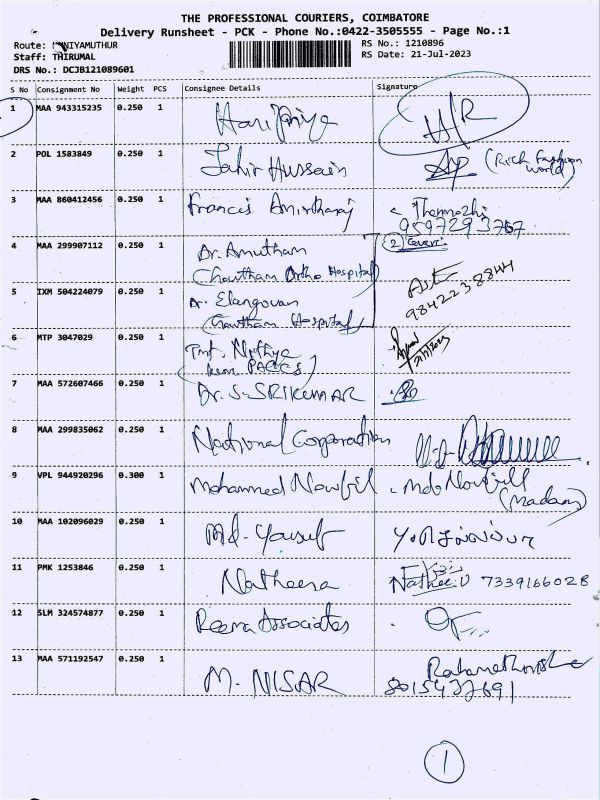 THE PROFESSIONAL COURIERS, COIMBATORE
Delivery Runsheet - PCK - Phone No.:0422-3505555 - Page No.:1
Route: NIYAMUTHUR
RS No.: 1210896
Staff: THIRUMAL
RS Date: 21-Jul-2023
DRS No.: DCJB121089601
S No Consignment No Weight PCS Consignee Details Signature
1 MAA 943315235 0.250 1 Haripriya
2 POL 1583849 0.250 1 Jahir Hussain (Rich Fashion World)
3 MAA 860412456 0.250 1 Francis Amirtharaj Thenmozhi
9597293767
4 MAA 299907112 0.250 1 Dr. Amutham 2 Cover
Chowtham Ortho Hospital
5 IXM 504224079 0.250 1 Dr. Elangovan 9842238844
Chowtham Hospital
6 MTP 3047029 0.250 1 Tmt. Nithya
PACCS
7 MAA 572607466 0.250 1 Dr. S. SRIKUMAR
8 MAA 299835062 0.250 1 National Corporation
9 VPL 944920296 0.300 1 Mohammed Nowfil Md. Nowfill
(Madam)
10 MAA 102096029 0.250 1 Md. Yousuf
11 PMK 1253846 0.250 1 Natheera 7339166028
12 SLM 324574877 0.250 1 Reema Associates
13 MAA 571192547 0.250 1 M. NISAR
8015437691
1